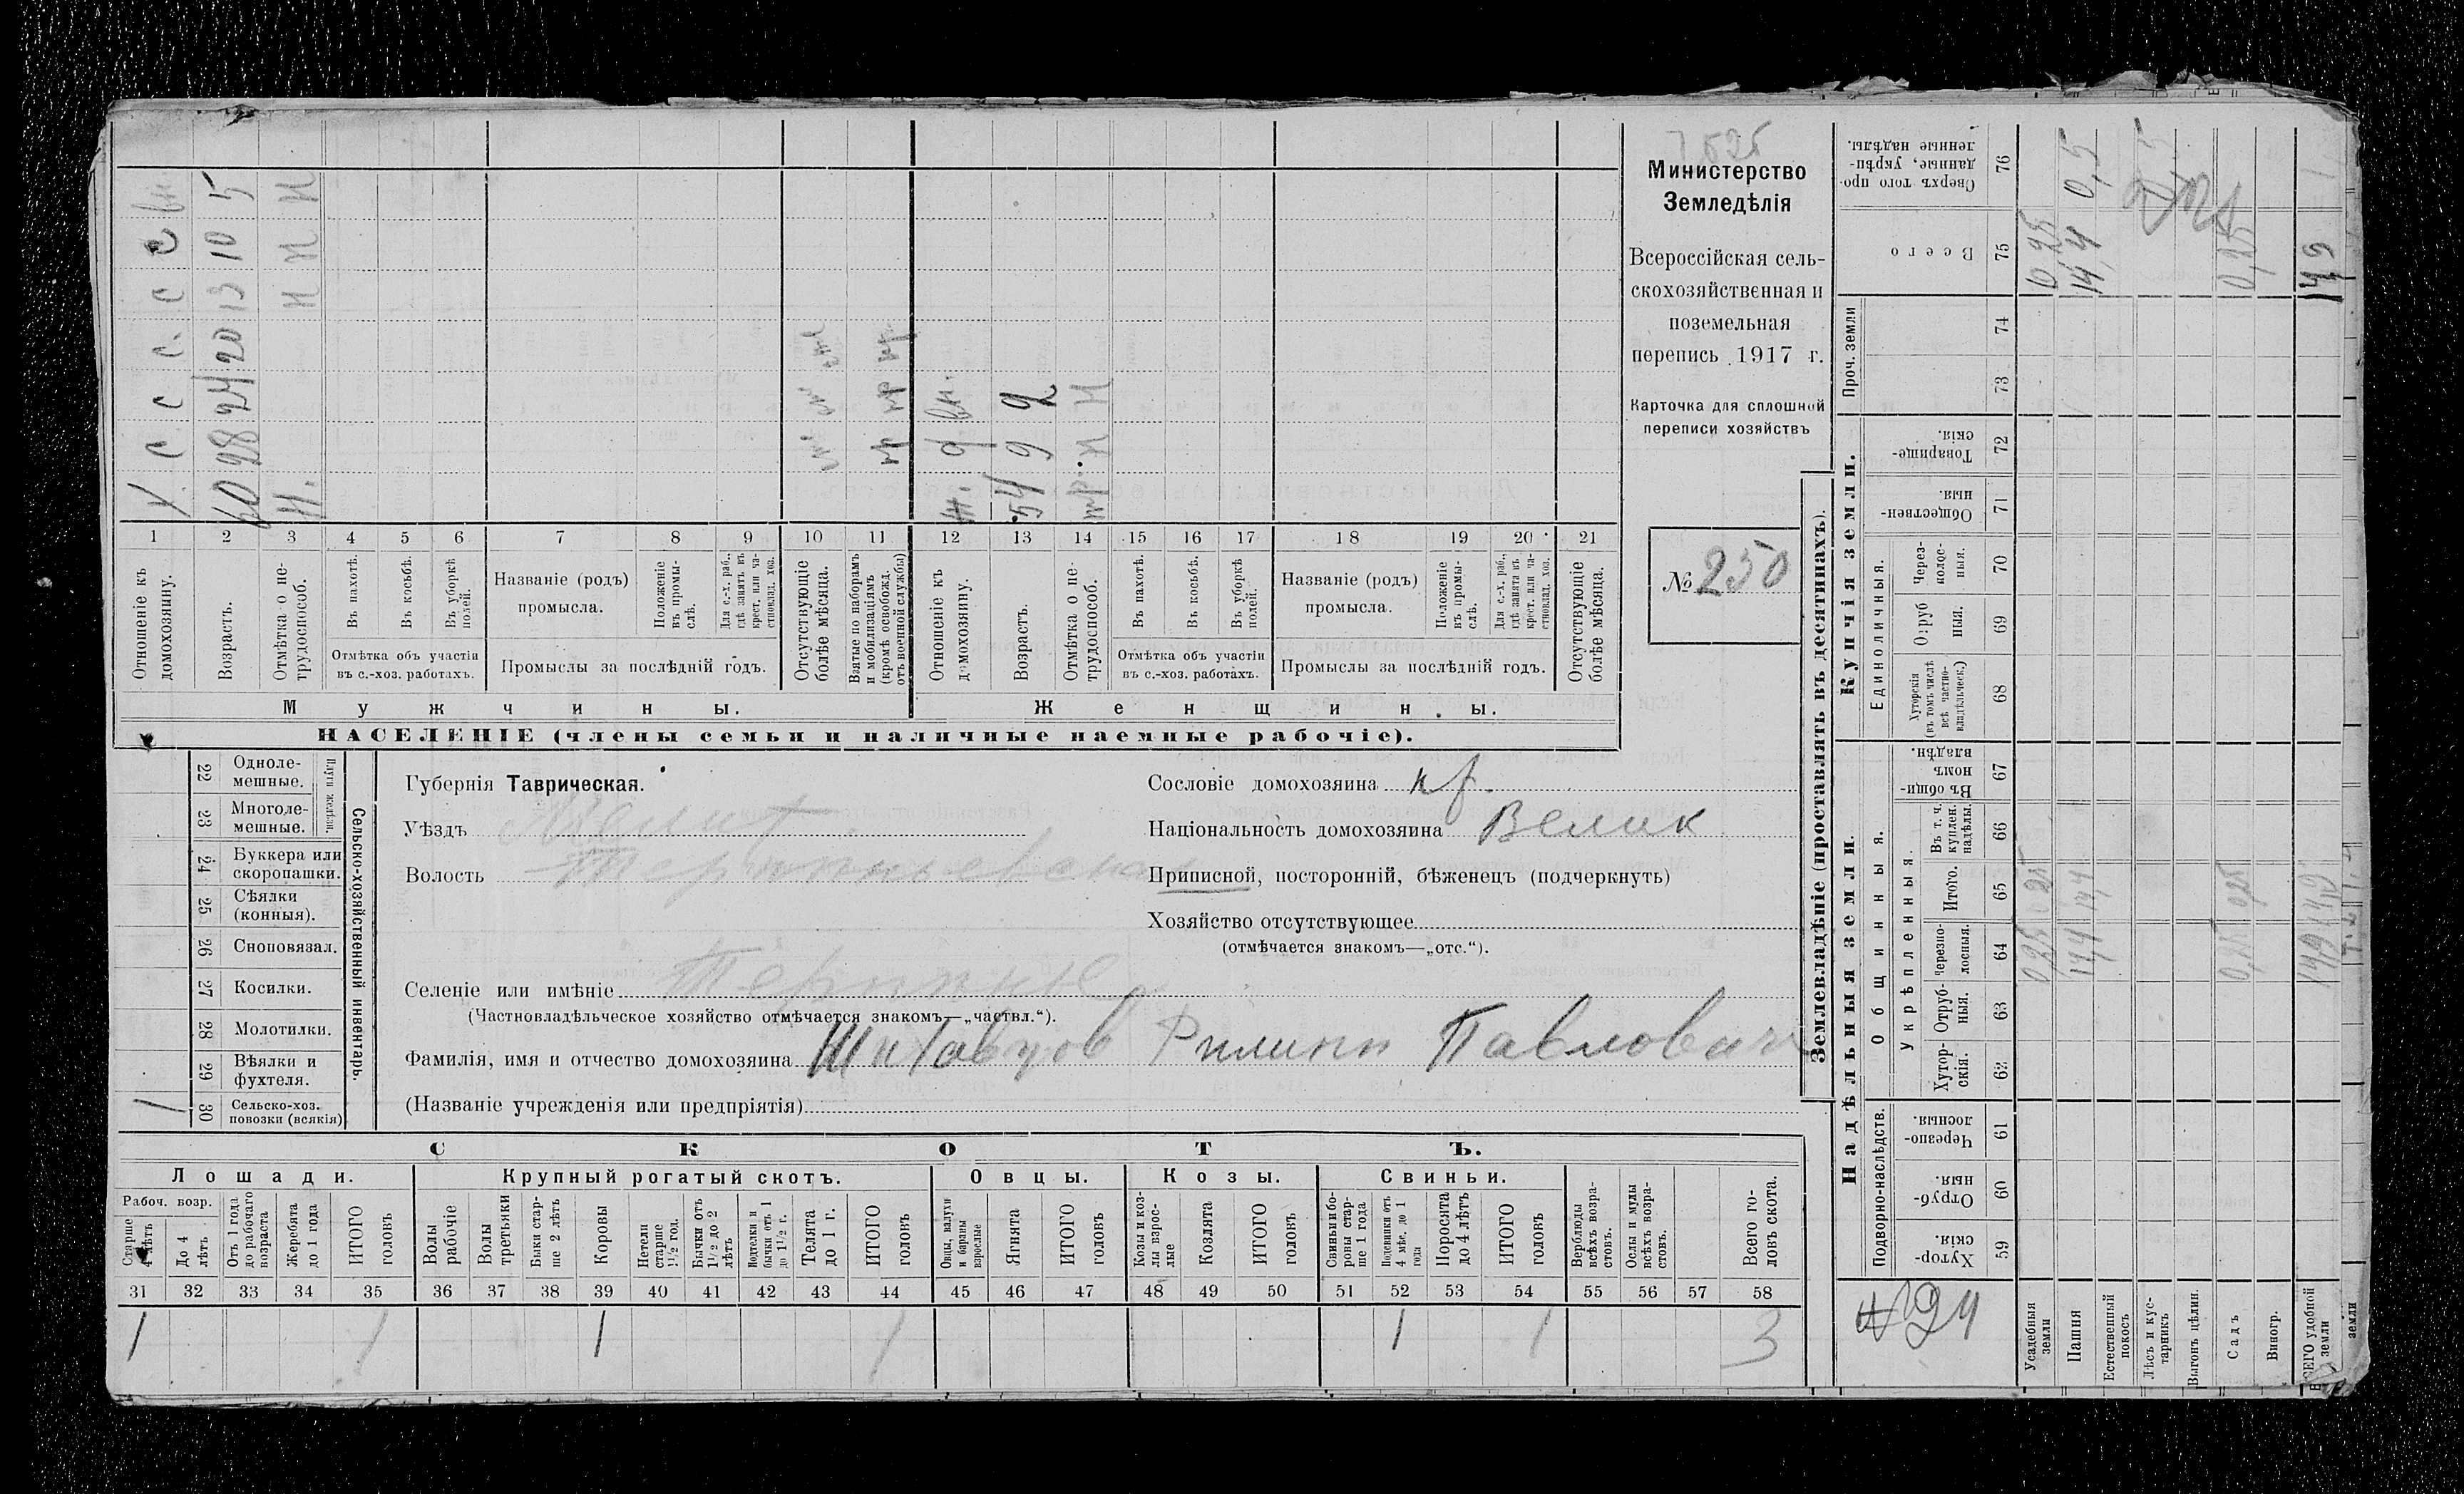 7525
Министерство
Земледѣлія
Всероссійская сель-
скохозяйственная и
поземельная
перепись 1917 г.
Карточка для сплошной
переписи хозяйствъ
№ 250
Х. С С С. С С вн
60 28 24 20 13 10 5
Н. Н Н Н
м м
Ж. д вн.
54 9 2
Н Н
1 2 3 4 5 6 7 8 9 10 11 12 13 14 15 16 17 18 19 20 21
Отношеніе къ домохозяину.
Возрастъ.
Отмѣтка о не-трудоспособ.
Въ пахотѣ.
Въ косьбѣ.
Въ уборкѣ полей.
Отмѣтка объ участіи
въ с.-хоз. работахъ.
Названіе (родъ)
промысла.
Положеніе въ промы-слѣ.
Для с.-х. раб., гдѣ занятъ въ крест. или ча-стновлад. хоз.
Промыслы за послѣдній годъ.
Отсутствующіе болѣе мѣсяца.
Взятые по наборамъ и мобилизаціямъ (кромѣ освобожд. отъ военной службы)
Отношеніе къ домохозяину.
Возрастъ.
Отмѣтка о не-трудоспособ.
Въ пахотѣ.
Въ косьбѣ.
Въ уборкѣ полей.
Отмѣтка объ участіи
въ с.-хоз. работахъ.
Названіе (родъ)
промысла.
Положеніе въ промы-слѣ.
Для с.-х. раб., гдѣ занята въ крест. или ча-стновлад. хоз.
Промыслы за послѣдній годъ.
Отсутствующіе болѣе мѣсяца.
Мужчины.
Женщины.
НАСЕЛЕНІЕ (члены семьи и наличные наемные рабочіе).
22 Одноле-мешные.
23 Многоле-мешные.
Плуги желѣзн.
24 Буккера или скоропашки.
25 Сѣялки (конныя).
26 Сноповязал.
27 Косилки.
28 Молотилки.
29 Вѣялки и фухтеля.
30 Сельско-хоз. повозки (всякія) 1
Сельско-хозяйственный инвентарь.
Губернія Таврическая.
Уѣздъ Мелит.
Волость Терпеньевская
Селеніе или имѣніе Терпенье
(Частновладѣльческое хозяйство отмѣчается знакомъ—„частвл.“).
Фамилія, имя и отчество домохозяина Филипп Павлович
(Названіе учрежденія или предпріятія)
Сословіе домохозяина кр.
Національность домохозяина Велик
Приписной, посторонній, бѣженецъ (подчеркнуть)
Хозяйство отсутствующее
(отмѣчается знакомъ—„отс.“).
СКОТЪ.
Лошади.
Крупный рогатый скотъ.
Овцы.
Козы.
Свиньи.
Рабоч. возр.
Старше 4 лѣтъ
До 4 лѣтъ
Отъ 1 года до рабочаго возраста
Жеребята до 1 года
ИТОГО головъ
Волы рабочіе
Волы третьяки
Быки стар-ше 2 лѣтъ
Коровы
Нетели старше 1½ год.
Бычки отъ 1½ до 2 лѣтъ
Подтелки и бычки отъ 1 до 1½ г.
Телята до 1 г.
ИТОГО головъ
Овцы, валухи и бараны взрослые
Ягнята
ИТОГО головъ
Козы и коз-лы взрос-лые
Козлята
ИТОГО головъ
Свиньи и бо-ровы стар-ше 1 года
Подсвинки отъ 4 мѣс. до 1 года
Поросята до 4 лѣтъ
ИТОГО головъ
Верблюды всѣхъ возра-стовъ.
Ослы и мулы всѣхъ возра-стовъ.
Всего го-ловъ скота.
31 32 33 34 35 36 37 38 39 40 41 42 43 44 45 46 47 48 49 50 51 52 53 54 55 56 57 58
1 1 1 1 1 1 3
Землевладѣніе (проставлять въ десятинахъ).
Надѣльныя земли.
Купчія земли.
Проч. земли
Подворно-наслѣдств.
Общинныя.
Укрѣпленныя.
Единоличныя.
59 Хутор-скія.
60 Отруб-ныя.
61 Черезпо-лосныя.
62 Хутор-скія.
63 Отруб-ныя.
64 Черезпо-лосныя.
65 Итого.
66 Въ т. ч. куплен. надѣлы.
67 Въ общи-номъ владѣн.
68 Хуторскія (въ томъ числѣ всѣ частно-владѣльческ.)
69 Отруб ныя.
70 Через-полос-ныя.
71 Обществен-ныя.
72 Товарище-скія.
73
74
75 Всего
76 Сверхъ того про-данные, укрѣп-ленные надѣлы.
Усадебныя земли 0,25 0,25 0,25
Пашня 14,4 14,4 14,4 0,5
Естественный покосъ
Лѣсъ и кус-тарникъ
Выгонъ цѣлин.
Садъ 0,25 0,25 0,25
Виногр.
ВСЕГО удобной земли 14,9 14,9 14,9
земли
№ 24